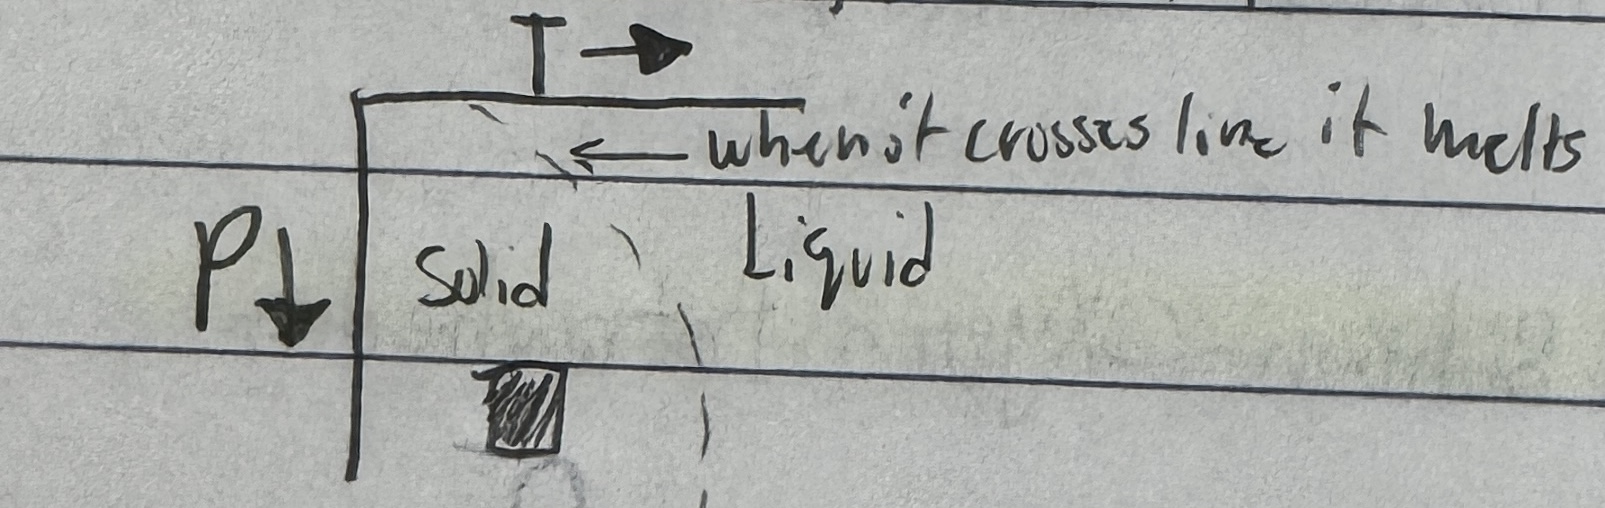 T
when it crosses line it melts
P
Solid
Liquid